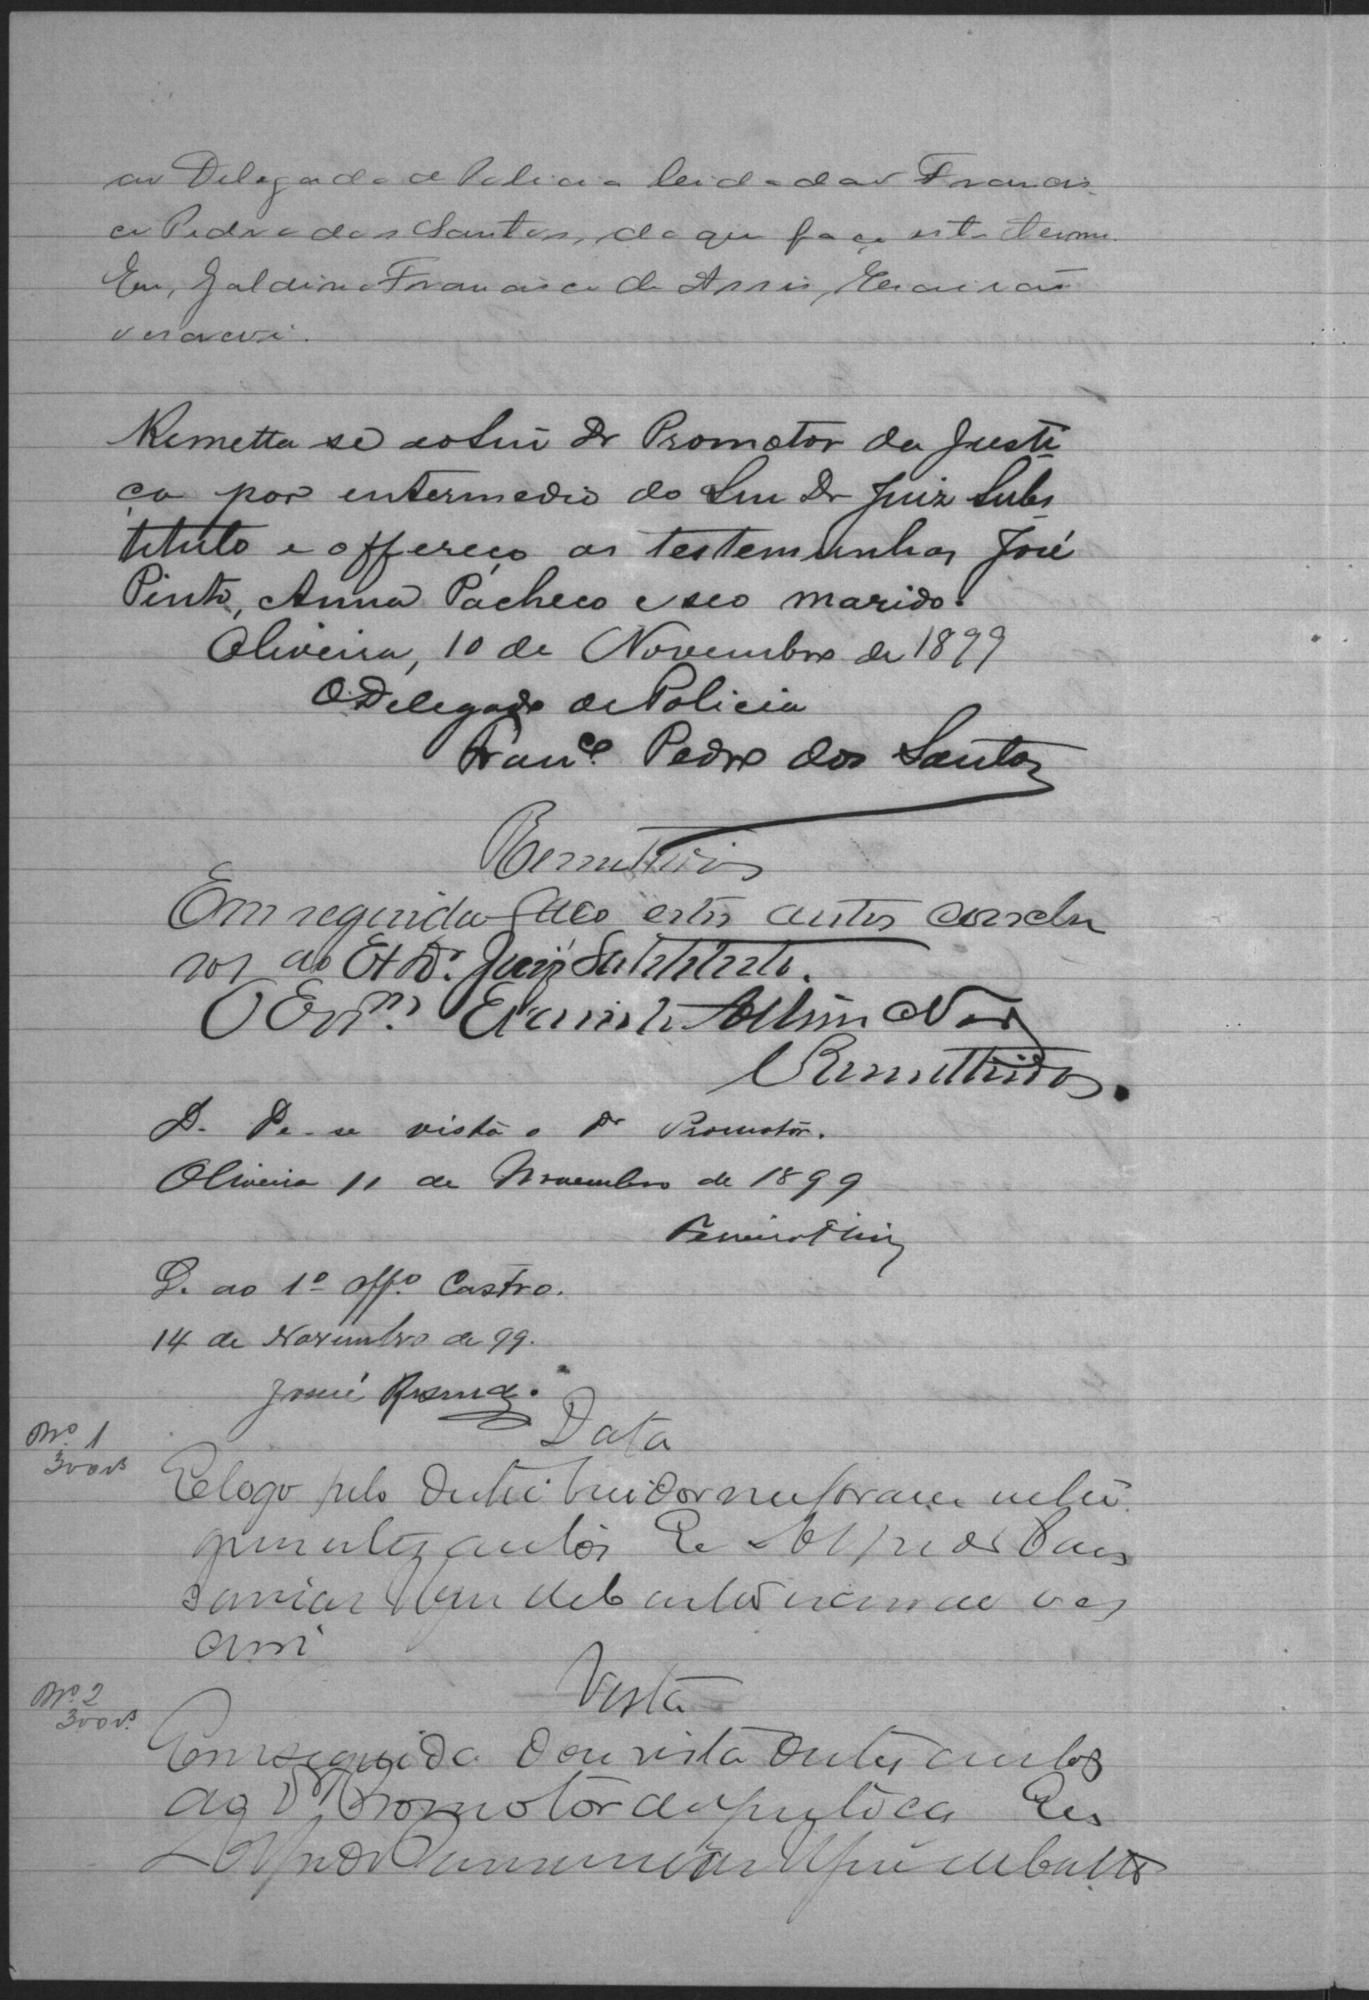 ao Delegado de Policia cidadão Francis-
co Pedro dos Santos, do que faço este termo.
Eu, Galdino Francisco de Assis, Escrivão
o escrevi.
Remetta se ao Snr Dr Promotor da Justi
ça por intermedio do Snr Dr Juiz Subs
tituto e offereço as testemunhas José
Pinto, Anna Pacheco e seo marido.
Oliveira, 10 de Novembro de 1899
O Delegado de Policia
Franco. Pedro dos Santos
Remettidos
Em seguida faço estes autos conclu
sos ao Ex Dr. Juiz Substituto.
O Esm.
Remettidos.
D. De-se vista o Dr Promotor.
Oliveira 11 de Novembro de 1899
D. ao 1º offº Castro.
14 de Novembro de 99.
José
Data
Nº 1
300rs
E logo pelo distribuidor me foram entre
gues estes autos Eu
assi
Vista
Nº 2
300rs
Em seguida dou vista destes autos
ao Dr Promotor da justiça Eu